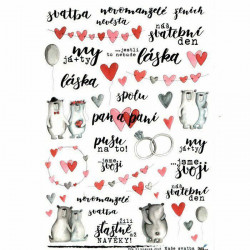 svatba novomanželé ženich
nevěsta
náš
svatební
den
my
já+ty
...jestli
to nebude
láska
láska
spolu
pan a paní
pusu
na to!
...jsme
svoji
...jsme
svoji
náš
svatební
den
novomanželé
svatba
žili
šťastně
až
NAVĚKY!
Naše svatba